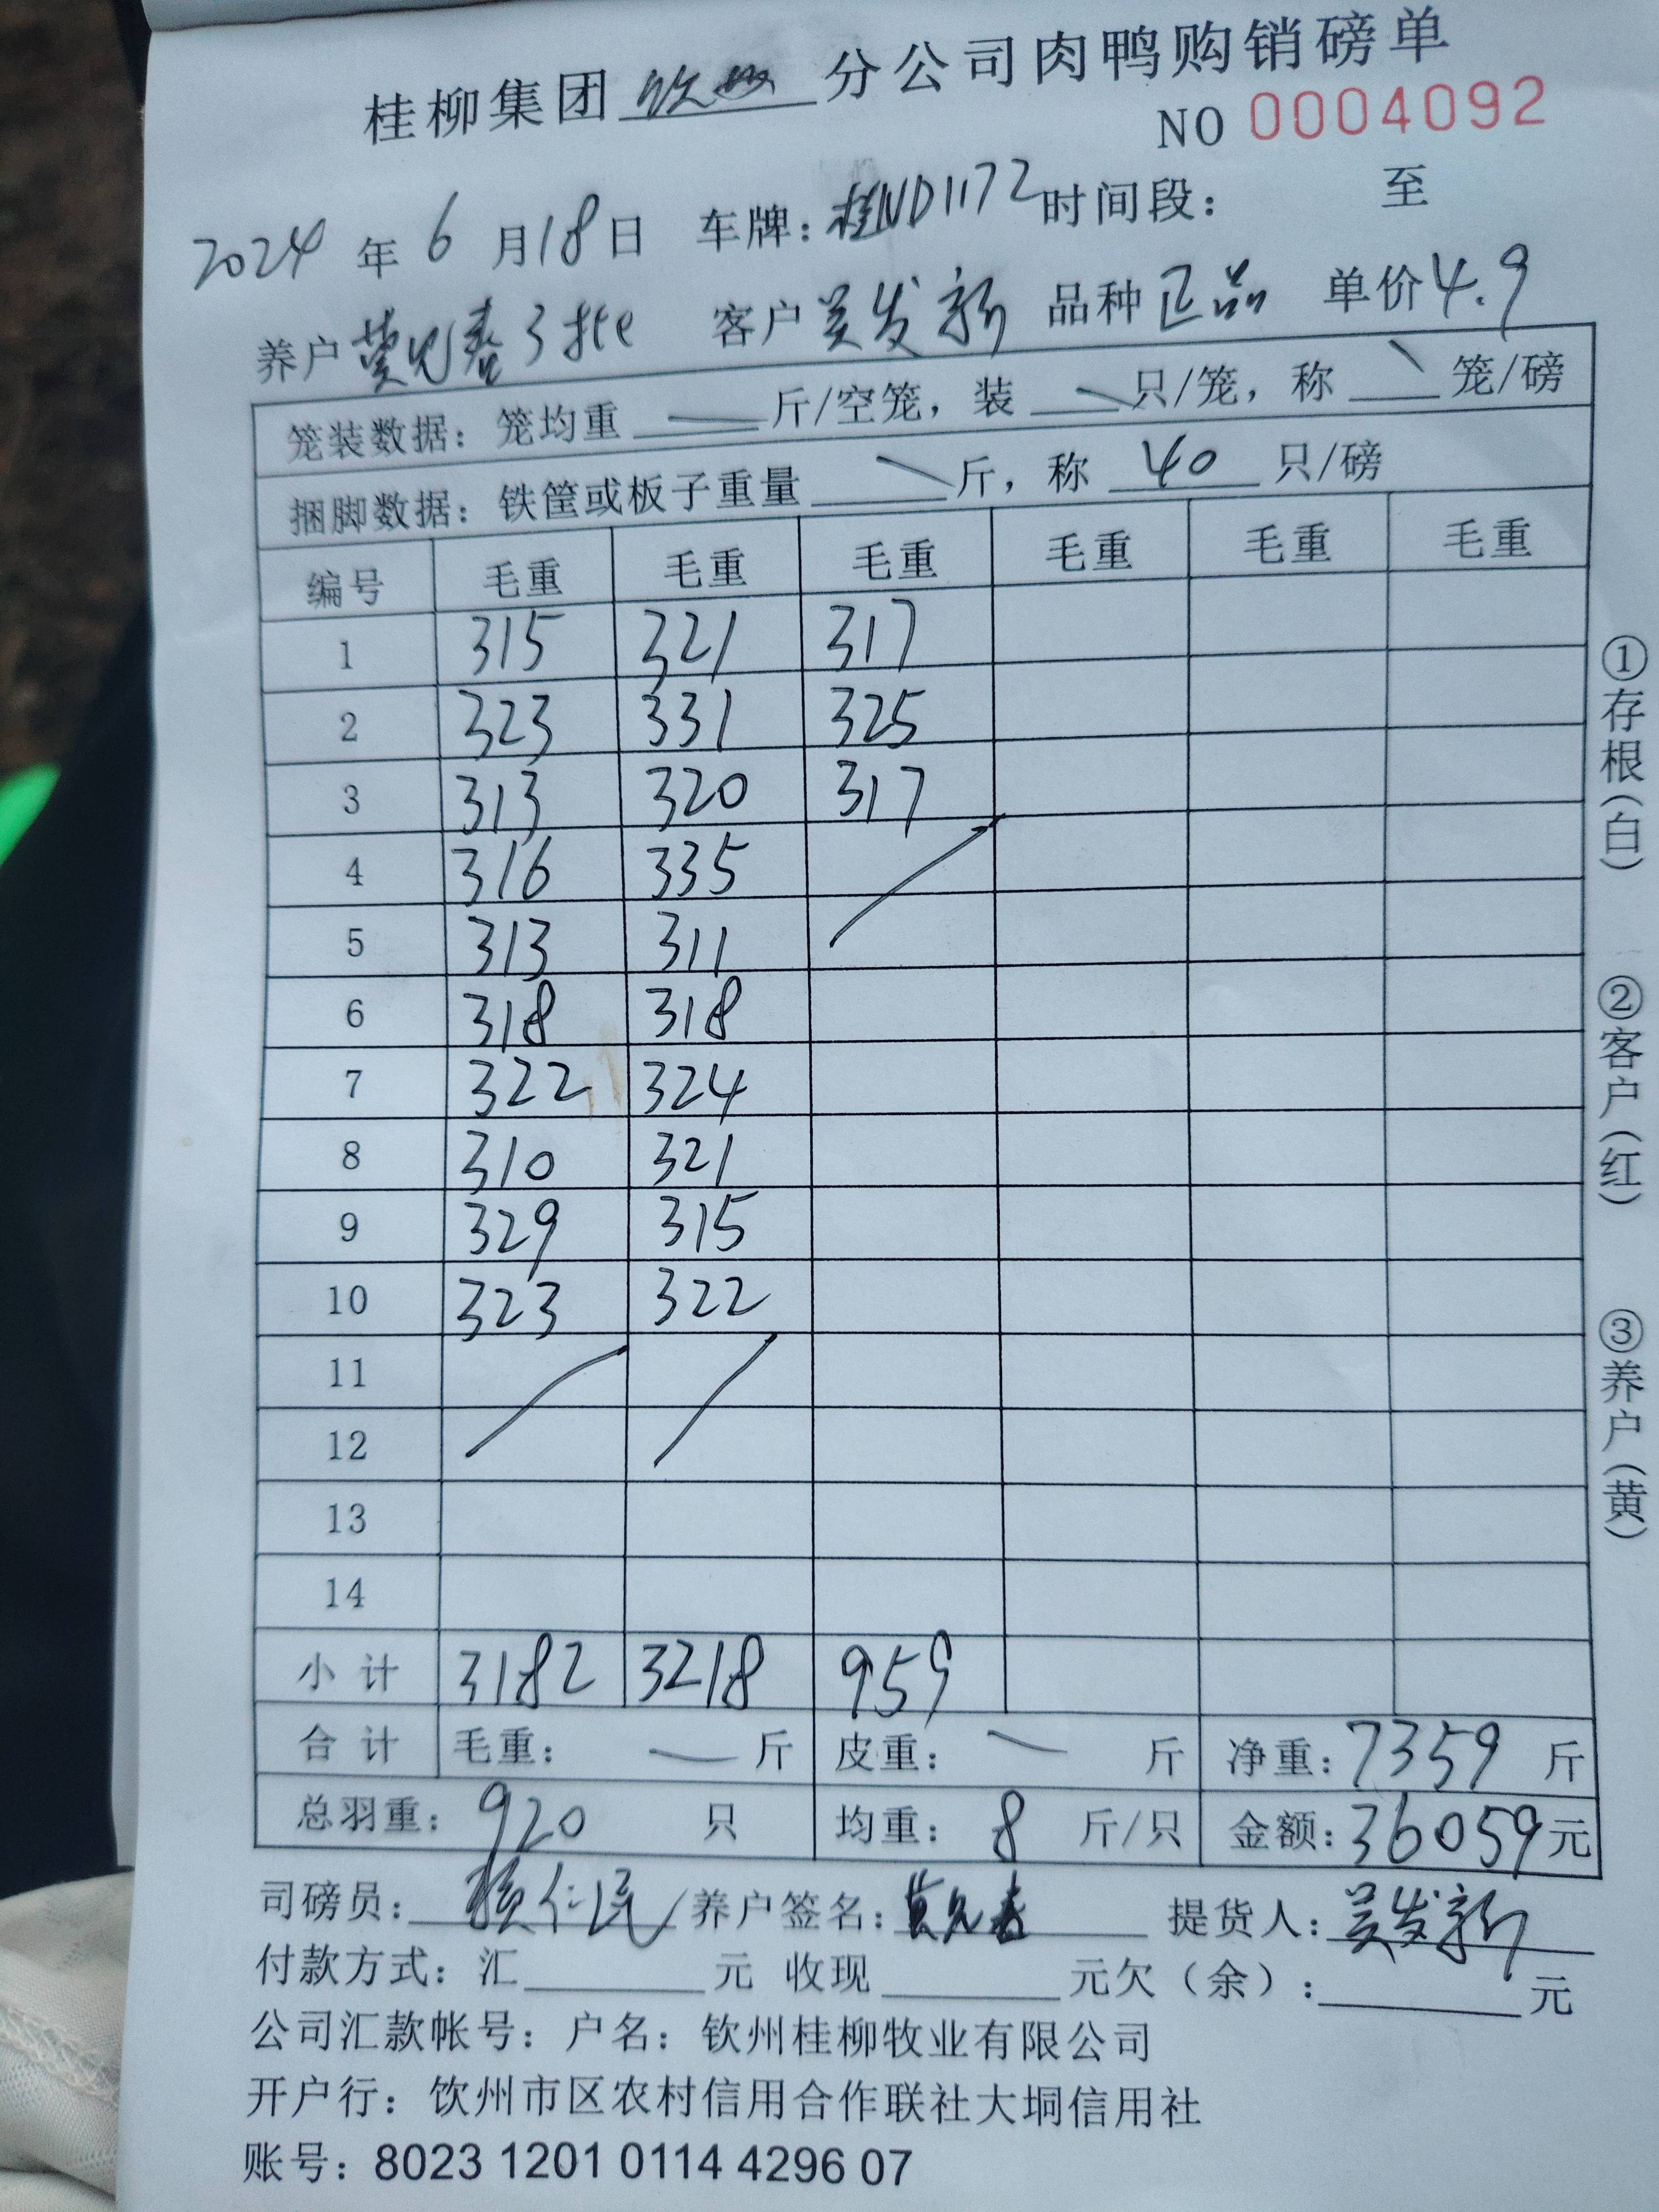 桂柳集团 钦州 分公司肉鸭购销磅单
NO 0004092
2024 年 6 月 18 日 车牌: 桂ND1172 时间段: 至
养户 3批 客户 吴发新 品种 正品 单价 4.9
笼装数据: 笼均重 斤/空笼, 装 只/笼, 称 笼/磅
捆脚数据: 铁筐或板子重量 斤, 称 40 只/磅
编号 毛重 毛重 毛重 毛重 毛重 毛重
1 315 321 317
2 323 331 325
3 313 320 317
4 316 335
5 313 311
6 318 318
7 322 324
8 310 321
9 329 315
10 323 322
11
12
13
14
小计 3182 3218 959
合计 毛重: 斤 皮重: 斤 净重: 7359 斤
总羽重: 920 只 均重: 8 斤/只 金额: 36059 元
司磅员: 仁民 养户签名: 提货人: 吴发新
付款方式: 汇 元 收现 元欠（余）: 元
公司汇款帐号: 户名: 钦州桂柳牧业有限公司
开户行: 钦州市区农村信用合作联社大垌信用社
账号: 8023 1201 0114 4296 07
①存根(白)
②客户(红)
③养户(黄)